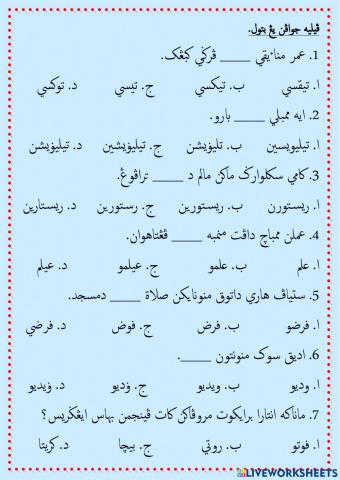 ڤيليه جواڤن يڠ بتول.
1. عمر مناٴيقي ____ ڤرݢي کبڠک.
ا. تيقسي ب. تيکسي ج. تيسي د. توکسي
2. ايه ممبلي ____ بارو.
ا. تيليۏيسين ب. تليۏيشن ج. تيليۏيشين د. تيليۏيشن
3. کامي سکلوارݢ ماکن مالم د ____ تراڤوڠ.
ا. ريستورن ب. ريستورين ج. رستورين د. ريستارين
4. عملن ممباچ داڤت منمبه ____ ڤڠتاهوان.
ا. علم ب. علمو ج. عيلمو د. عيلم
5. ستياڤ هاري داتوق منونايکن صلاة ____ دمسجد.
ا. فرضو ب. فرض ج. فوض د. فرضي
6. اديق سوک منونتون ____.
ا. وديو ب. ويديو ج. ۏديو د. ۏيديو
7. ماناکه انتارا برايکوت مروڤاکن کات ڤينجمن بهاس ايڠݢريس؟
ا. فوتو ب. روتي ج. بيچا د. کريتا
LIVEWORKSHEETS